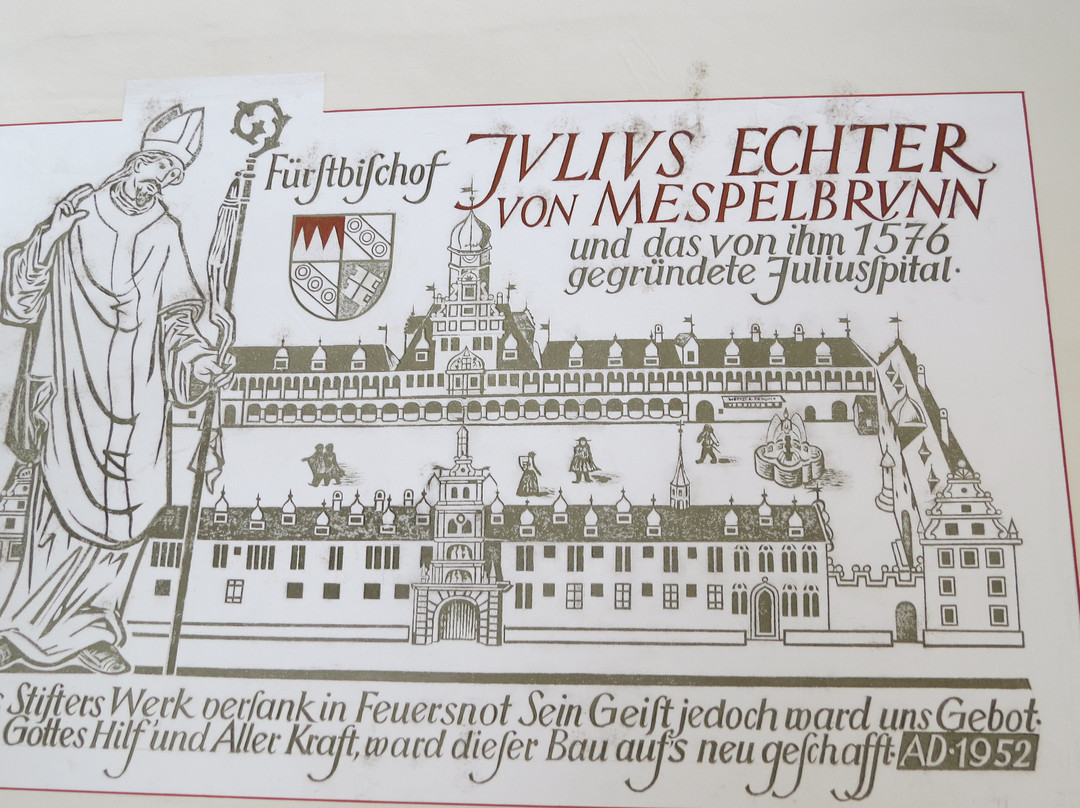 Fürſtbiſchof
JVLIVS ECHTER
VON MESPELBRVNN
und das von ihm 1576
gegründete Juliusſpital·
Stifters Werk verſank in Feuersnot Sein Geiſt jedoch ward uns Gebot·
Gottes Hilf' und Aller Kraft, ward dieſer Bau auf's neu geſchafft· AD·1952